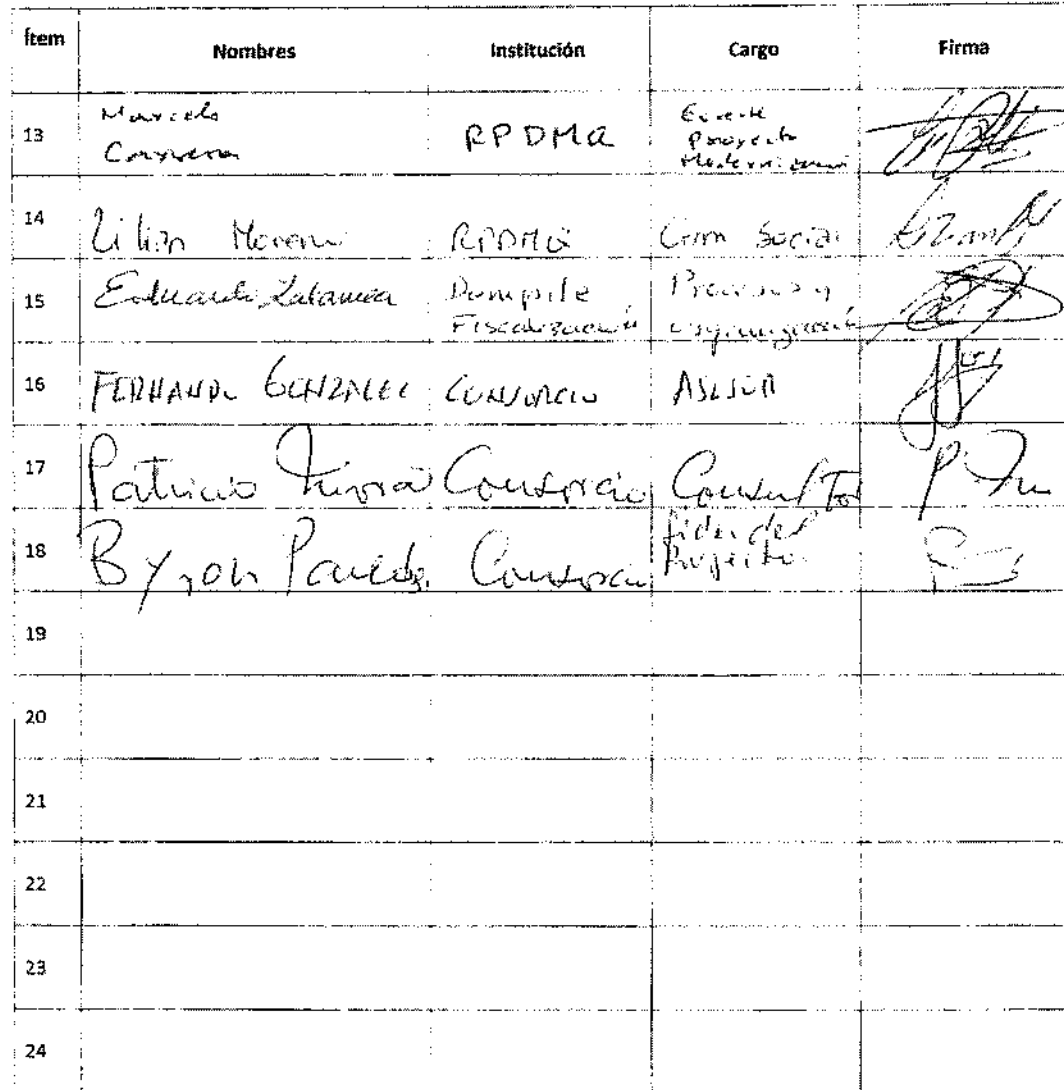 Ítem Nombres Institución Cargo Firma
13 Marcelo
RPDMQ
Proyecto
14 Lilian Moreno RPDMQ Com Social
15 Eduardo Zalamea
Fiscalización
Procesos y
16 FERNANDO GONZALEZ CONSORCIO ASESOR
17 Patricio Consorcio Consultor
18 Byron Paredes Consorcio
Lider del
Proyecto
19
20
21
22
23
24